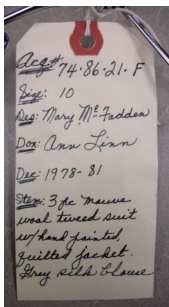 Acq# 74.86.21.F
Size: 10
Des: Mary McFadden
Don: Ann Linn
Dec: 1978-81
Item: 3 pc mauve
wool tweed suit
w/hand painted,
quilted jacket.
Grey silk blouse